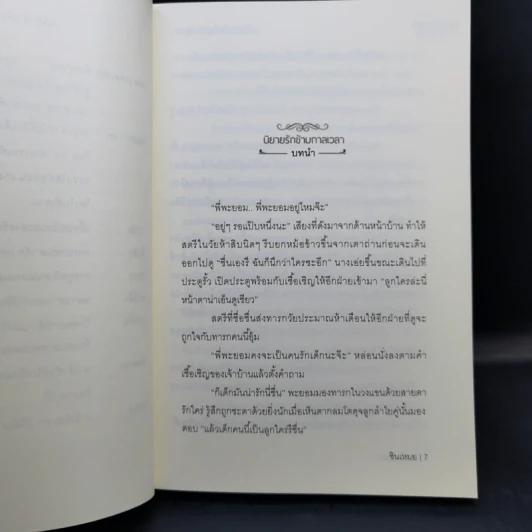 นิยายรักข้ามกาลเวลา
บทนำ
"พี่พะยอม.. พี่พะยอมอยู่ไหมจ๊ะ"
"อยู่ๆ รอแป๊บหนึ่งนะ" เสียงที่ดังมาจากด้านหน้าบ้าน ทำให้
สตรีในวัยห้าสิบนิดๆ รีบยกหม้อข้าวขึ้นจากเตาถ่านก่อนจะเดิน
ออกไปดู "ชื่นเองรึ ฉันก็นึกว่าใครซะอีก" นางเอ่ยขึ้นขณะเดินไปที่
ประตูรั้ว เปิดประตูพร้อมกับเชื้อเชิญให้อีกฝ่ายเข้ามา "ลูกใครล่ะนี่
หน้าตาน่าเอ็นดูเชียว"
สตรีที่ชื่อชื่นส่งทารกวัยประมาณห้าเดือนให้อีกฝ่ายที่ดูจะ
ถูกใจกับทารกคนนี้อุ้ม
"พี่พะยอมคงจะเป็นคนรักเด็กนะจ๊ะ" หล่อนนั่งลงตามคำ
เชื้อเชิญของเจ้าบ้านแล้วตั้งคำถาม
"ก็เด็กมันน่ารักนี่ชื่น" พะยอมมองทารกในวงแขนด้วยสายตา
รักใคร่ รู้สึกถูกชะตาด้วยยิ่งนักเมื่อเห็นตากลมโตดุจลูกลำไยคู่นั้นมอง
ตอบ "แล้วเด็กคนนี้เป็นลูกใครรึชื่น"
ชินเหมย | 7